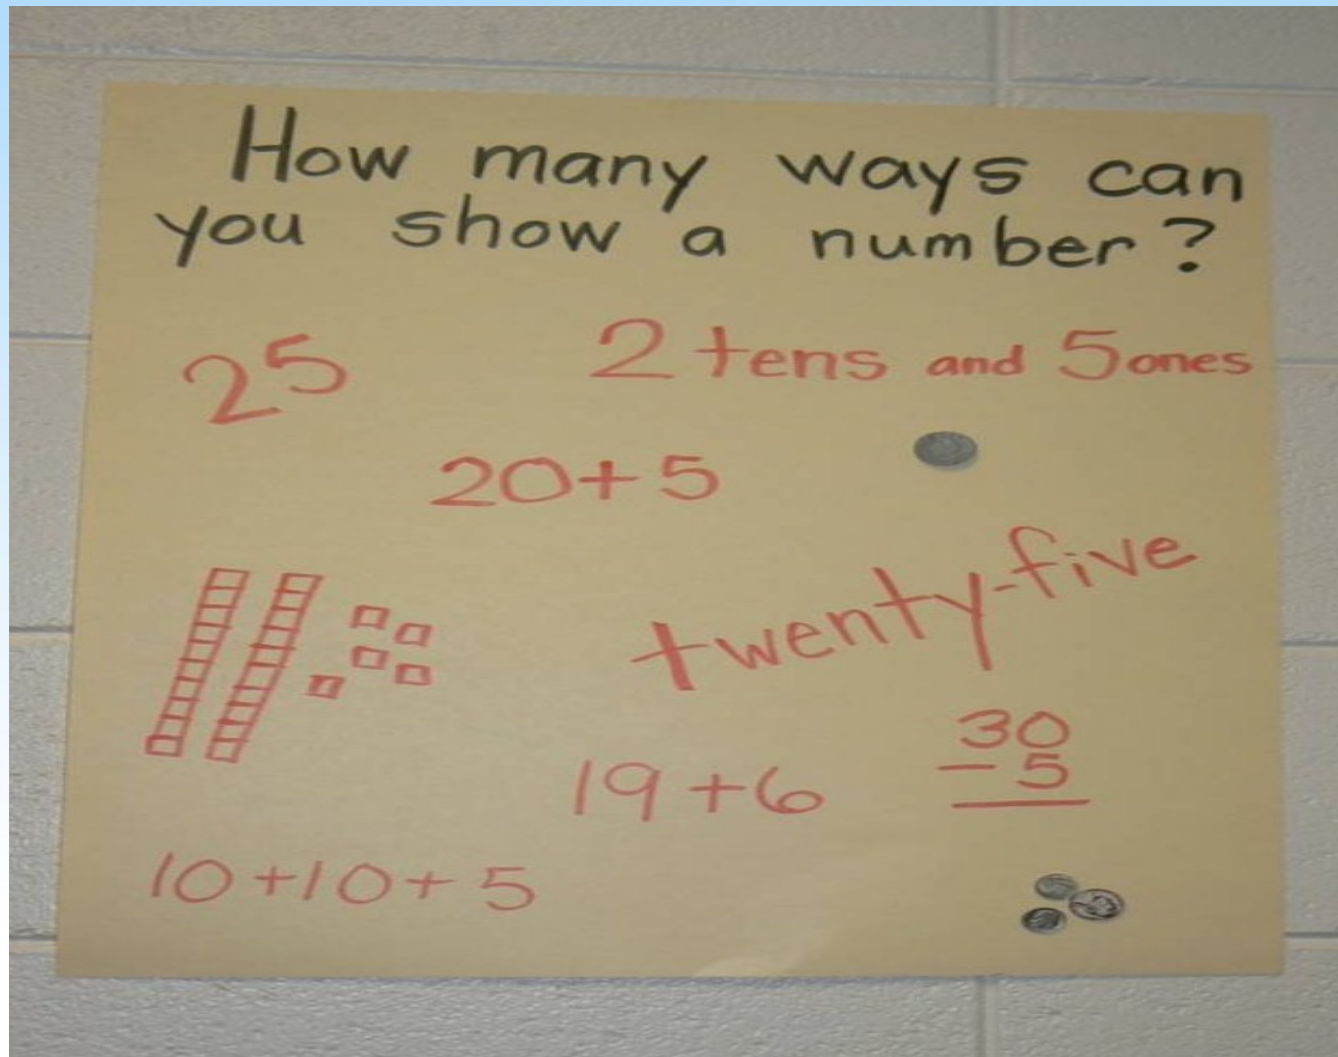 How many ways can
you show a number?
25
2 tens and 5 ones
20+5
twenty-five
30
- 5
19+6
10+10+5